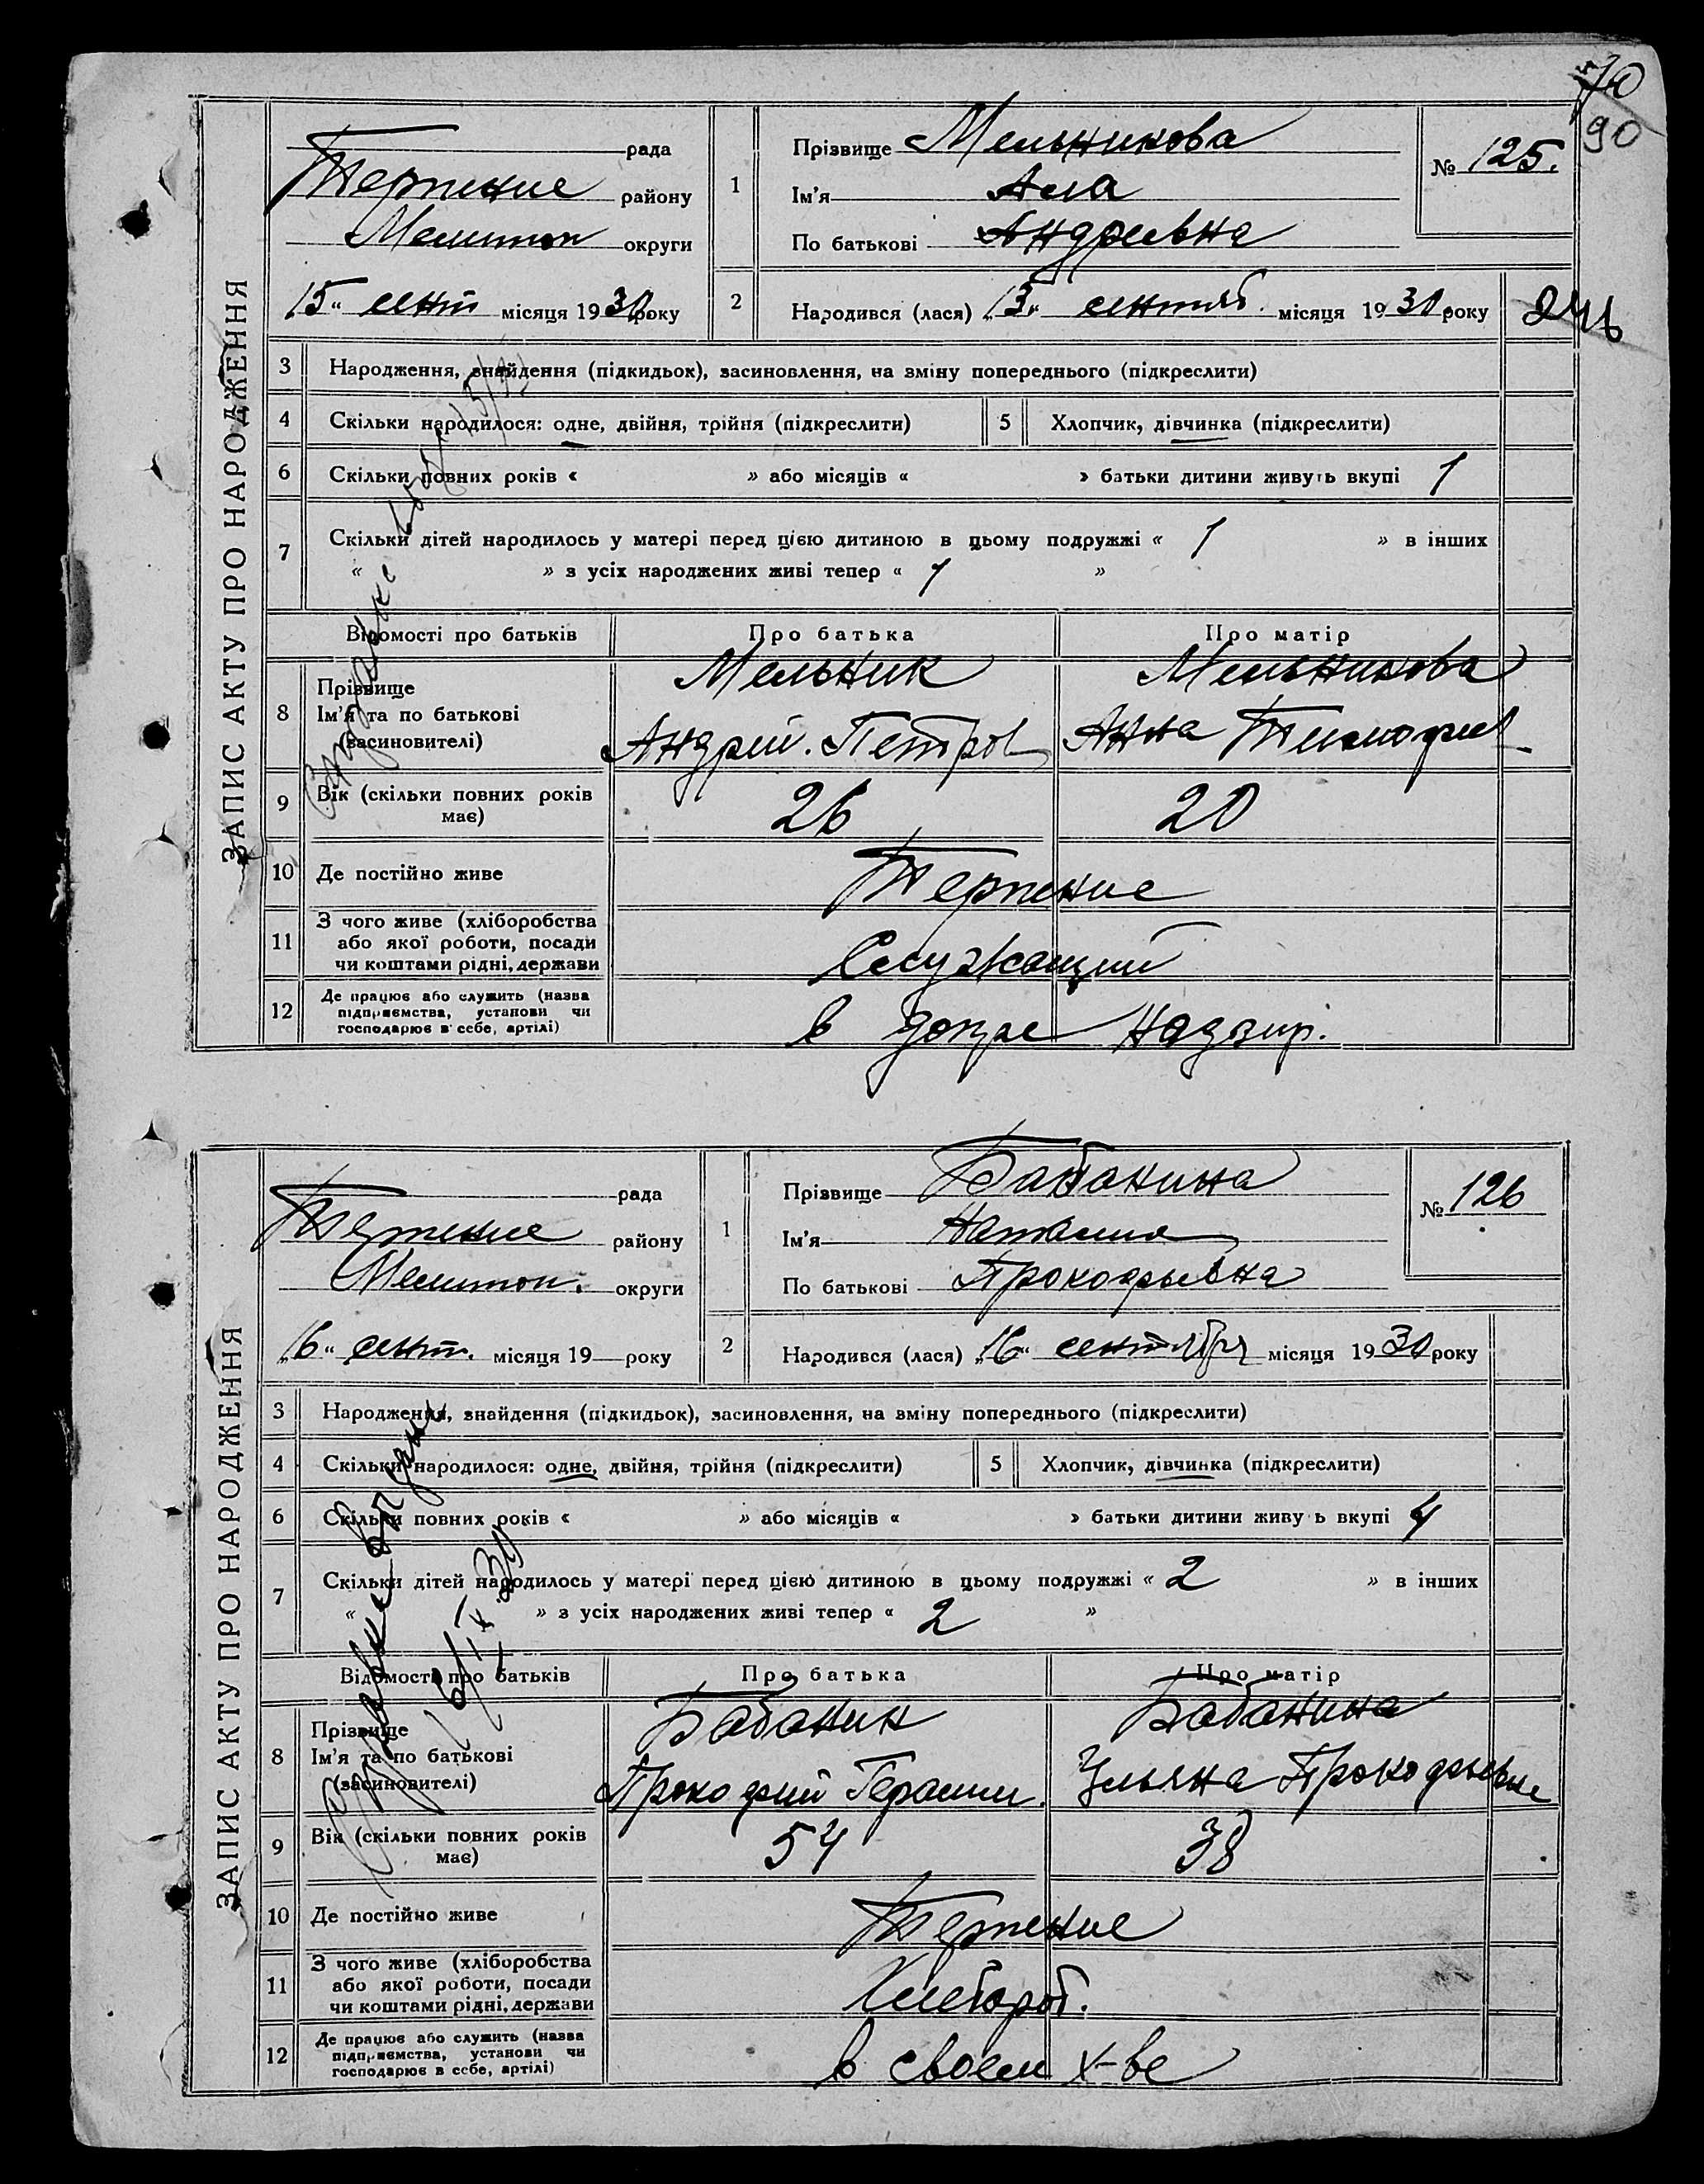 70
90
ЗАПИС АКТУ ПРО НАРОДЖЕННЯ
рада
Терпение району
Мелитоп округи
„15“ сент місяця 1930 року
1
Прізвище Мельникова
Ім'я Ала
По батькові Андреевна
№ 125.
2
Народився (лася) „13“ сентяб. місяця 1930 року
3 Народження, знайдення (підкидьок), засиновлення, на зміну попереднього (підкреслити)
4 Скільки народилося: одне, двійня, трійня (підкреслити) 5 Хлопчик, дівчинка (підкреслити)
6 Скільки повних років « » або місяців « » батьки дитини живуть вкупі 1
7 Скільки дітей народилось у матері перед цією дитиною в цьому подружжі « 1 » в інших
« » з усіх народжених живі тепер « 1 »
Відомості про батьків Про батька Про матір
8 Прізвище Мельник Мельникова
Ім'я та по батькові
(засиновителі) Андрей. Петров Анна Тимофеев
9 Вік (скільки повних років має) 26 20
10 Де постійно живе Терпение
11 З чого живе (хліборобства
або якої роботи, посади
чи коштами рідні, держави Служащий
12 Де працює або служить (назва
підприємства, установи чи
господарює в себе, артілі) в допре Надзир.
Справке
ЗАПИС АКТУ ПРО НАРОДЖЕННЯ
рада
Терпение району
Мелитоп. округи
„16“ сент. місяця 19 року
1
Прізвище Бабанина
Ім'я Наталия
По батькові Прокофьевна
№ 126
2
Народився (лася) „16“ сентября місяця 1930 року
3 Народження, знайдення (підкидьок), засиновлення, на зміну попереднього (підкреслити)
4 Скільки народилося: одне, двійня, трійня (підкреслити) 5 Хлопчик, дівчинка (підкреслити)
6 Скільки повних років « » або місяців « » батьки дитини живу ь вкупі 4
7 Скільки дітей народилось у матері перед цією дитиною в цьому подружжі « 2 » в інших
« » з усіх народжених живі тепер « 2 »
Відомості про батьків Про батька Про матір
8 Прізвище Бабанин Бабанина
Ім'я та по батькові
(засиновителі) Прокофий Герасим. Ульяна Прокофьевне
9 Вік (скільки повних років має) 54 38
10 Де постійно живе Терпение
11 З чого живе (хліборобства
або якої роботи, посади
чи коштами рідні, держави Хлебороб.
12 Де працює або служить (назва
підприємства, установи чи
господарює в себе, артілі) в своем х-ве
Справке выдан